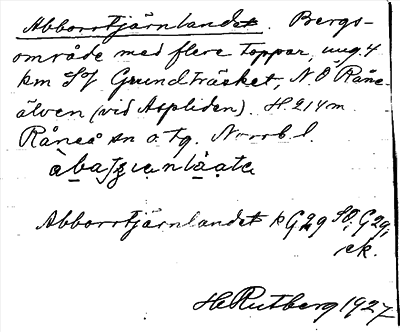 Abborrtjärnlandet. Bergs-
område med flere toppar, ung. 4
km S of Grundträsket, N O Råne-
älven (vid Aspliden). H 214 m.
Råneå sn o. tg. Norrb l.
Abborrtjärnlandet k G29 SO, G29,
ek.
H Rutberg 1927